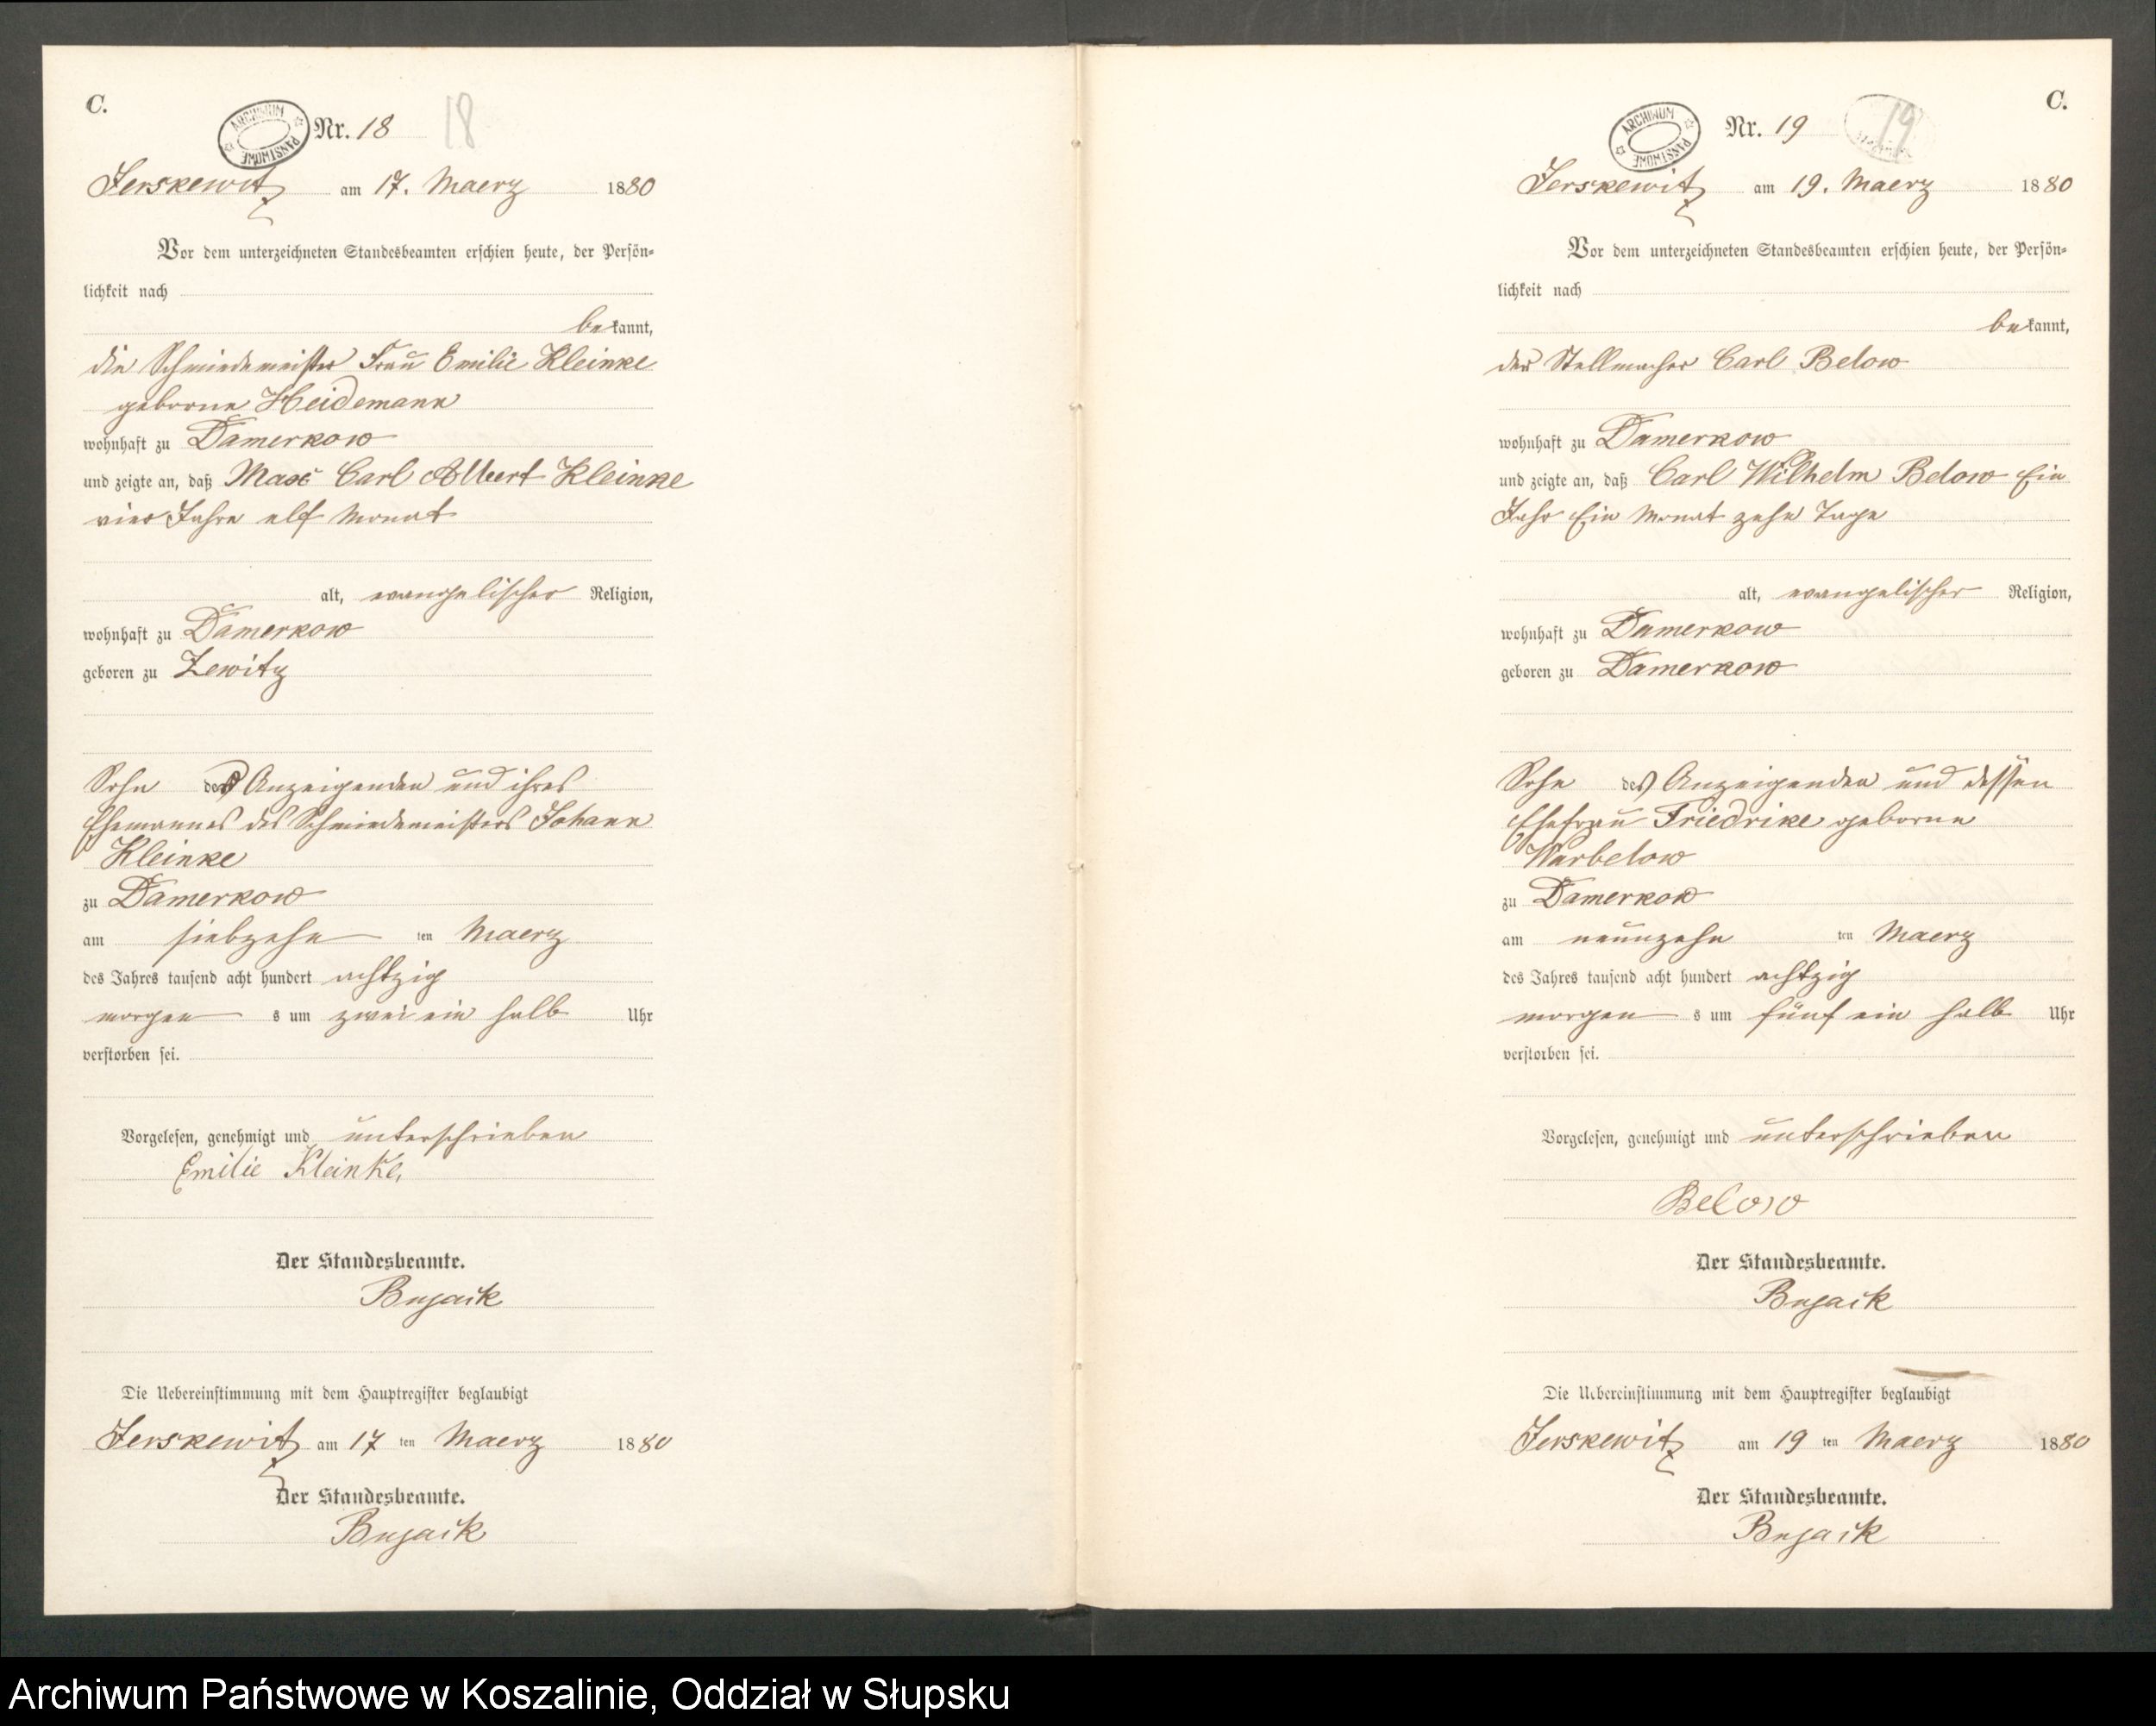 C.
ARCHIWUM PAŃSTWOWE
Nr. 18 18
Jerskewitz am 17. Maerz 1880
Vor dem unterzeichneten Standesbeamten erschien heute, der Persön-
lichkeit nach
bekannt,
die Schmiedemeister Frau Emilie Kleinke
geborne Heidemann
wohnhaft zu Damerkow
und zeigte an, daß Max Carl Albert Kleinke
vier Jahre elf Monat
alt, evangelischer Religion,
wohnhaft zu Damerkow
geboren zu Zewitz
Sohn der Anzeigenden und ihres
Ehemannes des Schmiedemeisters Johann
Kleinke
zu Damerkow
am siebzehn ten Maerz
des Jahres tausend acht hundert achtzig
morgen s um zwei ein halb Uhr
verstorben sei.
Vorgelesen, genehmigt und unterschrieben
Emilie Kleinke,
Der Standesbeamte.
Bujack
Die Uebereinstimmung mit dem Hauptregister beglaubigt
Jerskewitz am 17 ten Maerz 1880
Der Standesbeamte.
Bujack
C.
ARCHIWUM PAŃSTWOWE
Nr. 19 19
Jerskewitz am 19. Maerz 1880
Vor dem unterzeichneten Standesbeamten erschien heute, der Persön-
lichkeit nach
bekannt,
der Stellmacher Carl Below
wohnhaft zu Damerkow
und zeigte an, daß Carl Wilhelm Below Ein
Jahr Ein Monat zehn Tage
alt, evangelischer Religion,
wohnhaft zu Damerkow
geboren zu Damerkow
Sohn des Anzeigenden und dessen
Ehefrau Friedrike geborne
Warbelow
zu Damerkow
am neunzehn ten Maerz
des Jahres tausend acht hundert achtzig
morgen s um fünf ein halb Uhr
verstorben sei.
Vorgelesen, genehmigt und unterschrieben
Below
Der Standesbeamte.
Bujack
Die Uebereinstimmung mit dem Hauptregister beglaubigt
Jerskewitz am 19 ten Maerz 1880
Der Standesbeamte.
Bujack
Archiwum Państwowe w Koszalinie, Oddział w Słupsku